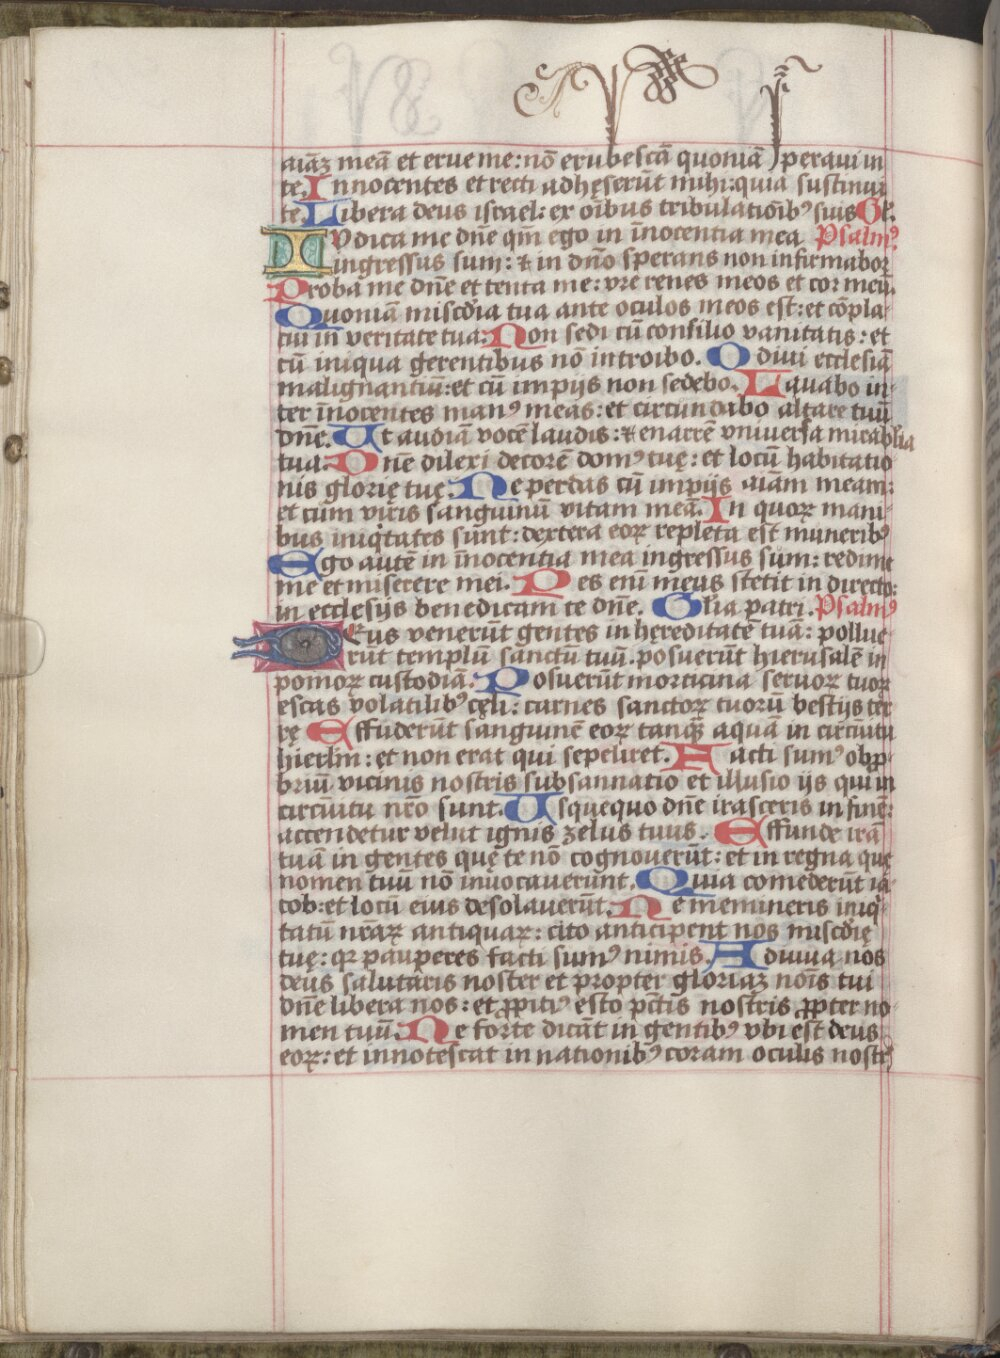 aiāꝫ meā et erue me: nō erubescā quoniā speraui in
te. Innocentes et recti adhęserūt mihi: quia sustinui
te. Libera deus israel: ex oībus tribulatiōibꝰ suis Gl'.
IVdica me dn̄e qm̄ ego in īnocentia mea Psalmꝰ
ingressus sum: ⁊ in dn̄o sperans non infirmaboꝝ
Proba me dn̄e et tenta me: vre renes meos et cor meū.
Quoniā misc̄dia tua ante oculos meos est: et cōpla-
cui in veritate tua: Non sedi cū consilio vanitatis: et
cū iniqua gerentibus nō introibo. Odiui ecclesiā
malignantiū: et cū impijs non sedebo. Lauabo in-
ter īnocentes manꝰ meas: et circūndabo altare tuū
dn̄e. Ut audiā vocē laudis: ⁊ enarrē vniuersa mirabilia
tua. Dn̄e dilexi decorē domꝰ tuę: et locū habitatio
nis glorię tuę. Ne perdas cū impijs aiām meam:
et cum viris sanguinū vitam meā. In quoꝝ mani-
bus iniq̇tates sūnt: dextera eoꝝ repleta est muneribꝰ
Ego autē in īnocentia mea ingressus sum: redime
me et miserere mei. Pes eni meus stetit in directo:
in ecclesijs benedicam te dn̄e. Glīa patri. Psalmꝰ
DEus venerūt gentes in hęreditatē tuā: pollue
rūt templū sanctū tuū. posuerūt hierusalē in
pomoꝝ custodiā. Posuerūt morticina seruoꝝ tuoꝝ
escas volatilibꝰ cęli: carnes sanctoꝝ tuorū bestijs ter
rę Effuderūt sanguinē eoꝝ tanq̄ aquā in circūitu
hierl̄m: et non erat qui sepeliret. Facti sumꝰ obꝓ-
briū vicinis nostris subsannatio et illusio ijs qui in
circūitu nr̄o sunt. Usquequo dn̄e irasceris in finē:
accendetur velut ignis zelus tuus. Effunde irā
tuā in gentes quę te nō cognouerūt: et in regna quę
nomen tuū nō inuocauerūnt. Quia comederūt ia-
cob: et locū eius desolauerūt. Ne memineris iniq̇-
tatū nr̄aꝝ antiquaꝝ: cito anticipent nos misc̄dię
tuę: qꝛ pauperes facti sumꝰ nimis. Adiuua nos
deus salutaris noster et propter gloriaꝫ noīs tui
dn̄e libera nos: et ꝓpitiꝰ esto pc̄tis nostris ꝓpter no-
men tuū. Ne forte dicāt in gentibꝰ vbi est deus
eoꝝ: et innotescat in nationibꝰ coram oculis nostrꝭ